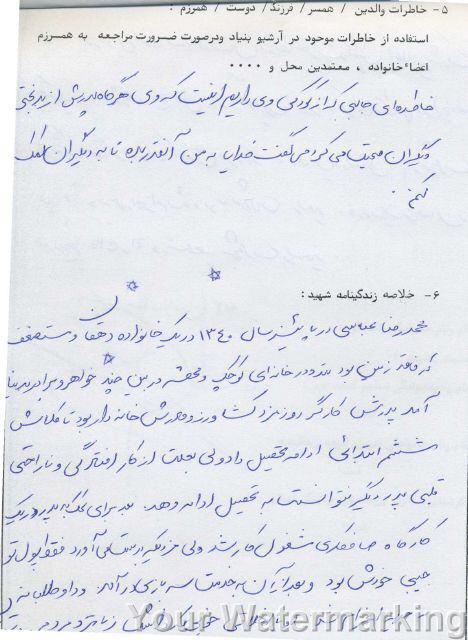 ۵- خاطرات والدین / همسر / فرزند / دوست / همرزم :
استفاده از خاطرات موجود در آرشیو بنیاد و در صورت ضرورت مراجعه به همرزم
اعضاء خانواده ، معتمدین محل و ۰۰۰۰
خاطره‌ای جالبی که از کودکی وی داریم اینست که وی هرگاه پدرش از بدبختی
دیگران صحبت می کرد می گفت خدایا به من آنقدر بده تا به دیگران کمک
کنم .
۶- خلاصه زندگینامه شهید :
محمدرضا عباسی در پائیز سال ۱۳۴۰ در یک خانواده دهقان و مستضعف
که فاقد زمین بودند و در خانه‌ای کوچک و در بین چند خواهر و برادر بدنیا
آمد پدرش کارگر روزمزد کشاورز و مادرش خانه دار بود تا کلاس
ششم ابتدائی ادامه تحصیل داد ولی بعلت از کار افتادگی و ناراحتی
قلبی پدر دیگر نتوانست به تحصیل ادامه دهد بعد برای کمک به پدر در یک
کارگاه صافکاری مشغول کار شد ولی مزدی که بدست می آورد فقط پول تو
جیبی خودش بود و بعد از آن به خدمت سربازی درآمد و داوطلبانه
Your Watermarking